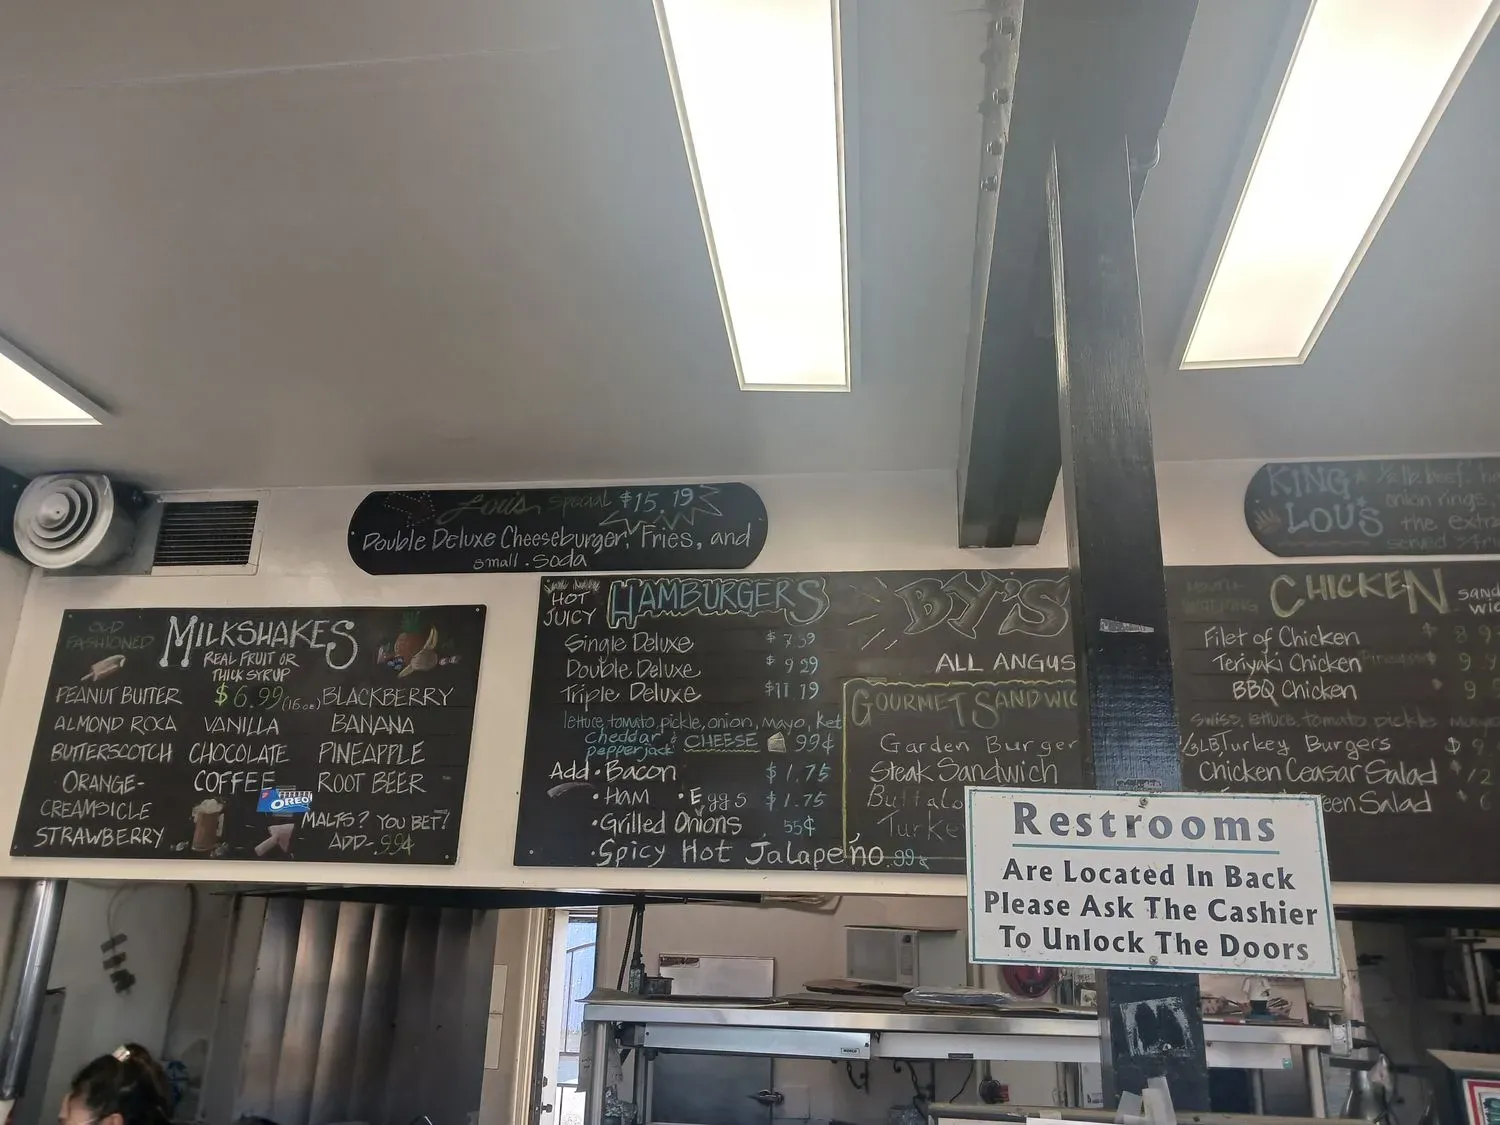 Lou's Special $15.19
Double Deluxe Cheeseburger, Fries, and
small. Soda
KING
LOU'S
½ lb beef,
onion rings,
the extra
served
OLD
FASHIONED
MILKSHAKES
REAL FRUIT OR
THICK SYRUP
PEANUT BUTTER $6.99 (16oz) BLACKBERRY
ALMOND ROCA VANILLA BANANA
BUTTERSCOTCH CHOCOLATE PINEAPPLE
ORANGE- COFFEE ROOT BEER
CREAMSICLE OREO
STRAWBERRY MALTS? YOU BET!
ADD .99¢
HOT
JUICY
HAMBURGERS
Single Deluxe
Double Deluxe $9.29
Triple Deluxe $11.19
lettuce, tomato, pickle, onion, mayo, ket
cheddar CHEESE 99¢
pepperjack
Add • Bacon $1.75
• HAM • Eggs $1.75
• Grilled Onions .55¢
• Spicy Hot Jalapeño .99¢
BY'S
ALL ANGUS
GOURMET SANDWIC
Garden Burger
Steak Sandwich
Buffalo
Turke
MOUTH
WATERING
CHICKEN
SAND
WIC
Filet of Chicken
Teriyaki Chicken
BBQ Chicken
swiss, lettuce, tomato, pickle, mayo
1/3 LB. Turkey Burgers
Chicken Ceasar Salad
een Salad
Restrooms
Are Located In Back
Please Ask The Cashier
To Unlock The Doors